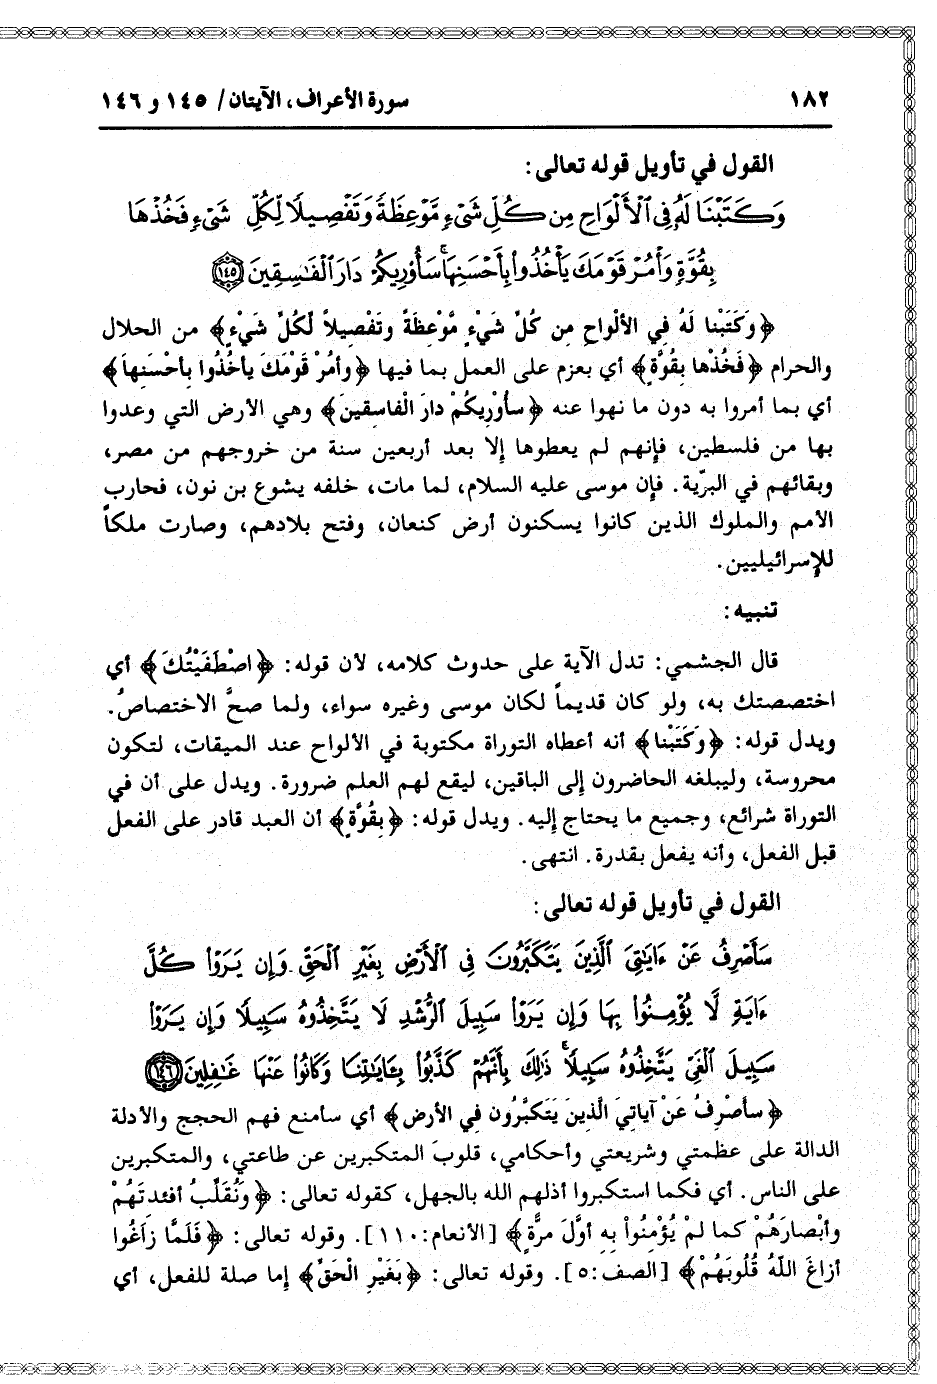 ١٨٢ سورة الأعراف، الآيتان/ ١٤٥ و ١٤٦
القول في تأويل قوله تعالى:
وَكَتَبْنَا لَهُۥ فِى ٱلْأَلْوَاحِ مِن كُلِّ شَىْءٍ مَّوْعِظَةً وَتَفْصِيلًا لِّكُلِّ شَىْءٍ فَخُذْهَا
بِقُوَّةٍ وَأْمُرْ قَوْمَكَ يَأْخُذُوا۟ بِأَحْسَنِهَا ۚ سَأُو۟رِيكُمْ دَارَ ٱلْفَٰسِقِينَ ﴿١٤٥﴾
﴿وَكَتَبْنا لَهُ فِي الألْواحِ مِن كُلِّ شَيْءٍ مَّوْعِظَةً وتَفْصِيلاً لِّكُلِّ شَيْءٍ﴾ من الحلال
والحرام ﴿فَخُذْها بِقُوَّةٍ﴾ أي بعزم على العمل بما فيها ﴿وأمُرْ قَوْمَكَ يأخُذُوا بِأحْسَنِهاَ﴾
أي بما أمروا به دون ما نهوا عنه ﴿سأُورِيكُمْ دارَ الْفاسِقينَ﴾ وهي الأرض التي وعدوا
بها من فلسطين، فإنهم لم يعطوها إلا بعد أربعين سنة من خروجهم من مصر،
وبقائهم في البرّية. فإن موسى عليه السلام، لما مات، خلفه يشوع بن نون، فحارب
الأمم والملوك الذين كانوا يسكنون أرض كنعان، وفتح بلادهم، وصارت ملكاً
للإسرائيليين.
تنبيه:
قال الجشمي: تدل الآية على حدوث كلامه، لأن قوله: ﴿اصْطَفَيْتُكَ﴾ أي
اختصصتك به، ولو كان قديماً لكان موسى وغيره سواء، ولما صحَّ الاختصاصُ.
ويدل قوله: ﴿وَكَتَبْنا﴾ أنه أعطاه التوراة مكتوبة في الألواح عند الميقات، لتكون
محروسة، وليبلغه الحاضرون إلى الباقين، ليقع لهم العلم ضرورة. ويدل على أن في
التوراة شرائع، وجميع ما يحتاج إليه. ويدل قوله: ﴿بِقُوَّةٍ﴾ أن العبد قادر على الفعل
قبل الفعل، وأنه يفعل بقدرة. انتهى.
القول في تأويل قوله تعالى:
سَأَصْرِفُ عَنْ ءَايَٰتِىَ ٱلَّذِينَ يَتَكَبَّرُونَ فِى ٱلْأَرْضِ بِغَيْرِ ٱلْحَقِّ وَإِن يَرَوْا۟ كُلَّ
ءَايَةٍ لَّا يُؤْمِنُوا۟ بِهَا وَإِن يَرَوْا۟ سَبِيلَ ٱلرُّشْدِ لَا يَتَّخِذُوهُ سَبِيلًا وَإِن يَرَوْا۟
سَبِيلَ ٱلْغَىِّ يَتَّخِذُوهُ سَبِيلًا ۚ ذَٰلِكَ بِأَنَّهُمْ كَذَّبُوا۟ بِـَٔايَٰتِنَا وَكَانُوا۟ عَنْهَا غَٰفِلِينَ ﴿١٤٦﴾
﴿سأصْرِفُ عَنْ آياتِيَ الَّذِينَ يَتَكَبَّرُون فِي الأرضِ﴾ أي سأمنع فهم الحجج والأدلة
الدالة على عظمتي وشريعتي وأحكامي، قلوبَ المتكبرين عن طاعتي، والمتكبرين
على الناس. أي فكما استكبروا أذلهم الله بالجهل، كقوله تعالى: ﴿وَنُقَلِّبُ أفئدَتَهُمْ
وأبْصارَهُمْ كما لَمْ يُؤْمِنُواْ بِهِ أوَّلَ مرَّةٍ﴾ [الأنعام:١١٠]. وقوله تعالى: ﴿فَلَمَّا زَاغُوا
أزاغَ اللّهُ قُلُوبَهُمْ﴾ [الصف:٥]. وقوله تعالى: ﴿بَغَيْرِ الْحَقِّ﴾ إما صلة للفعل، أي